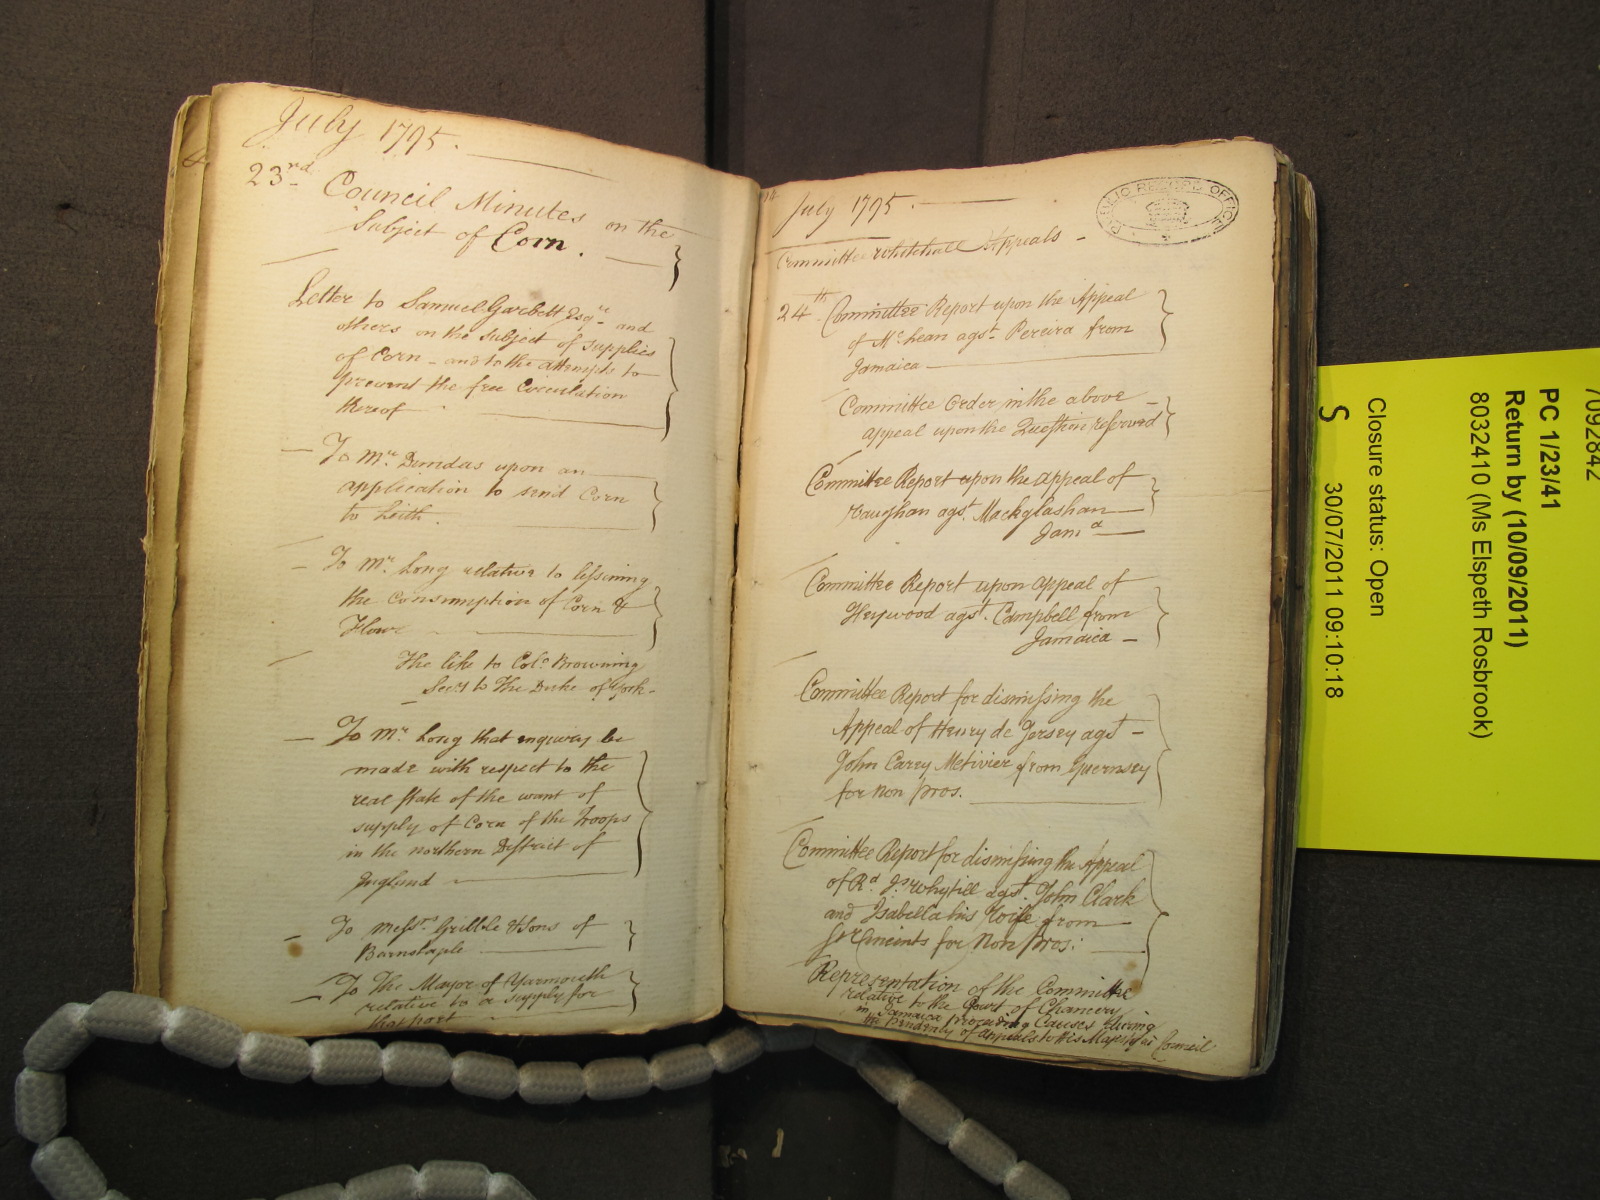 July 1795.
23rd Council Minutes on the
Subject of Corn.
Letter to Samuel Garbett Esqr. and
others on the subject of supplies
of Corn - and to the attempts to
prevent the free Circulation
thereof
To Mr. Dundas upon an
application to send Corn
to Leith.
To Mr. Long relative to lessining
the Consumption of Corn &
Flour
The like to Colo. Browning
Secy to the Duke of York -
To Mr. Long that enquiry be
made with respect to the
real state of the want of
supply of Corn of the Troops
in the northern District of
England
To Messrs. Gribble & Sons of
Barnstaple
To The Mayor of Yarmouth
relative to a supply for
that port
July 1795.
PUBLIC RECORD OFFICE
Committee Whitehall Appeals -
24th. Committee Report upon the Appeal
of McLean agst. Pereira from
Jamaica
Committee Order in the above
appeal upon the Question reserved
Committee Report upon the appeal of
Vaughan agst. Mackglashan
Jama
Committee Report upon appeal of
Heywood agst. Campbell from
Jamaica -
Committee Report for dismissing the
Appeal of Henry de Jersey agst -
John Carey Metivier from Guernsey
for Non Pros.
Committee Report for dismissing the Appeal
of Rd. Js. Whytill agst. John Clark
and Isabella his Wife from
St Vincents for Non Pros:
Representation of the Committee
relative to the Court of Chancery
in Jamaica proceeding Causes during
the pendency of appeals to His Majesty in Council
7092842
PC 1/23/41
Return by (10/09/2011)
8032410 (Ms Elspeth Rosbrook)
Closure status: Open
S 30/07/2011 09:10:18